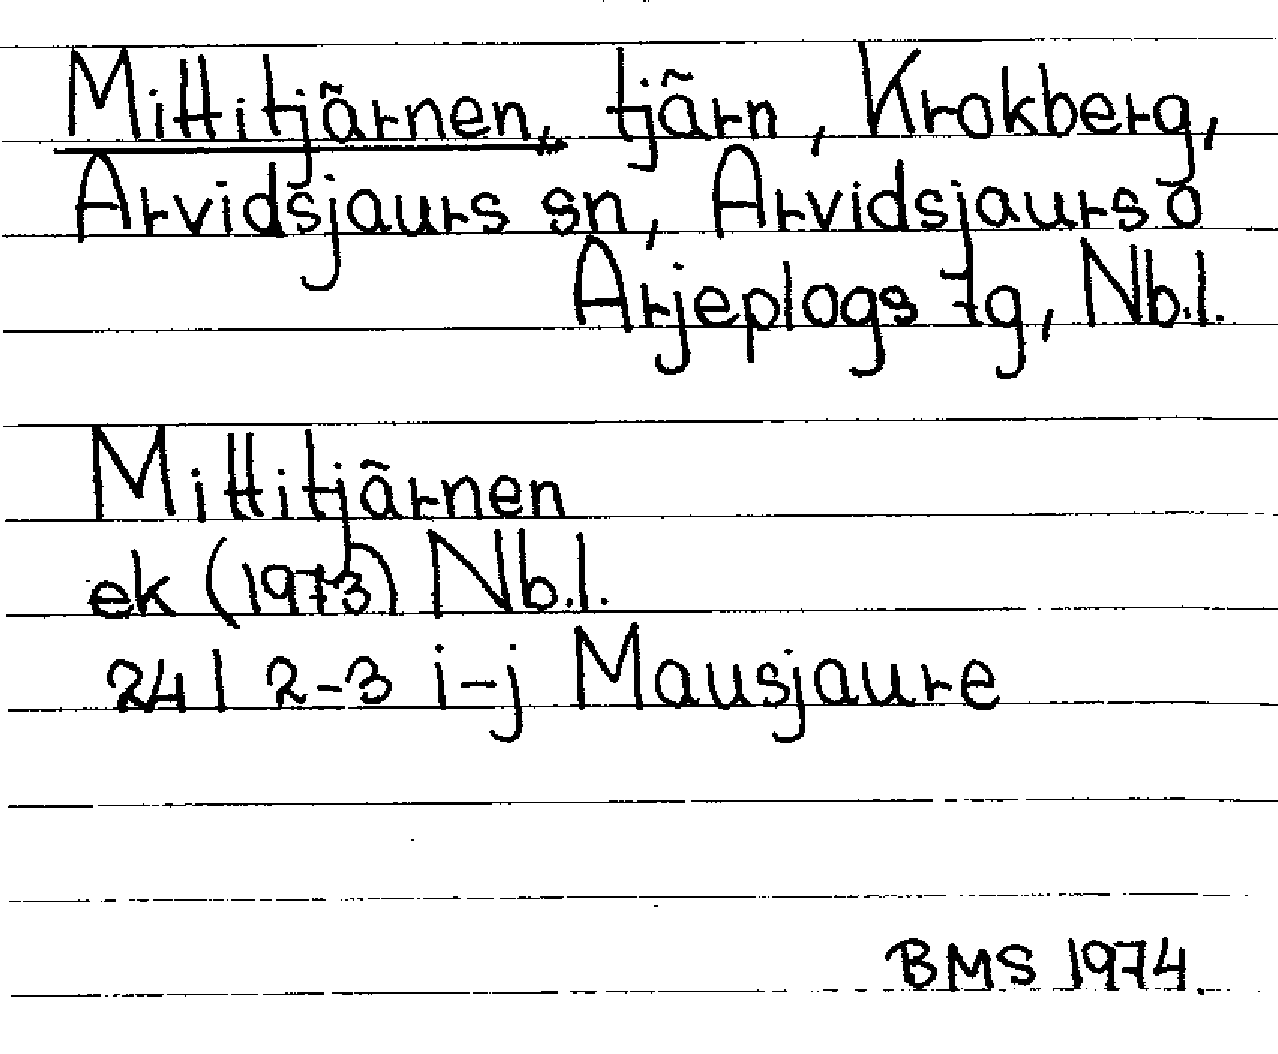 Mittitjärnen, tjärn, Krokberg,
Arvidsjaurs sn, Arvidsjaurs o
Arjeplogs tg, Nb.l.
Mittitjärnen
ek (1973) Nb.l.
24 I 2-3 i-j Mausjaure
BMS 1974.